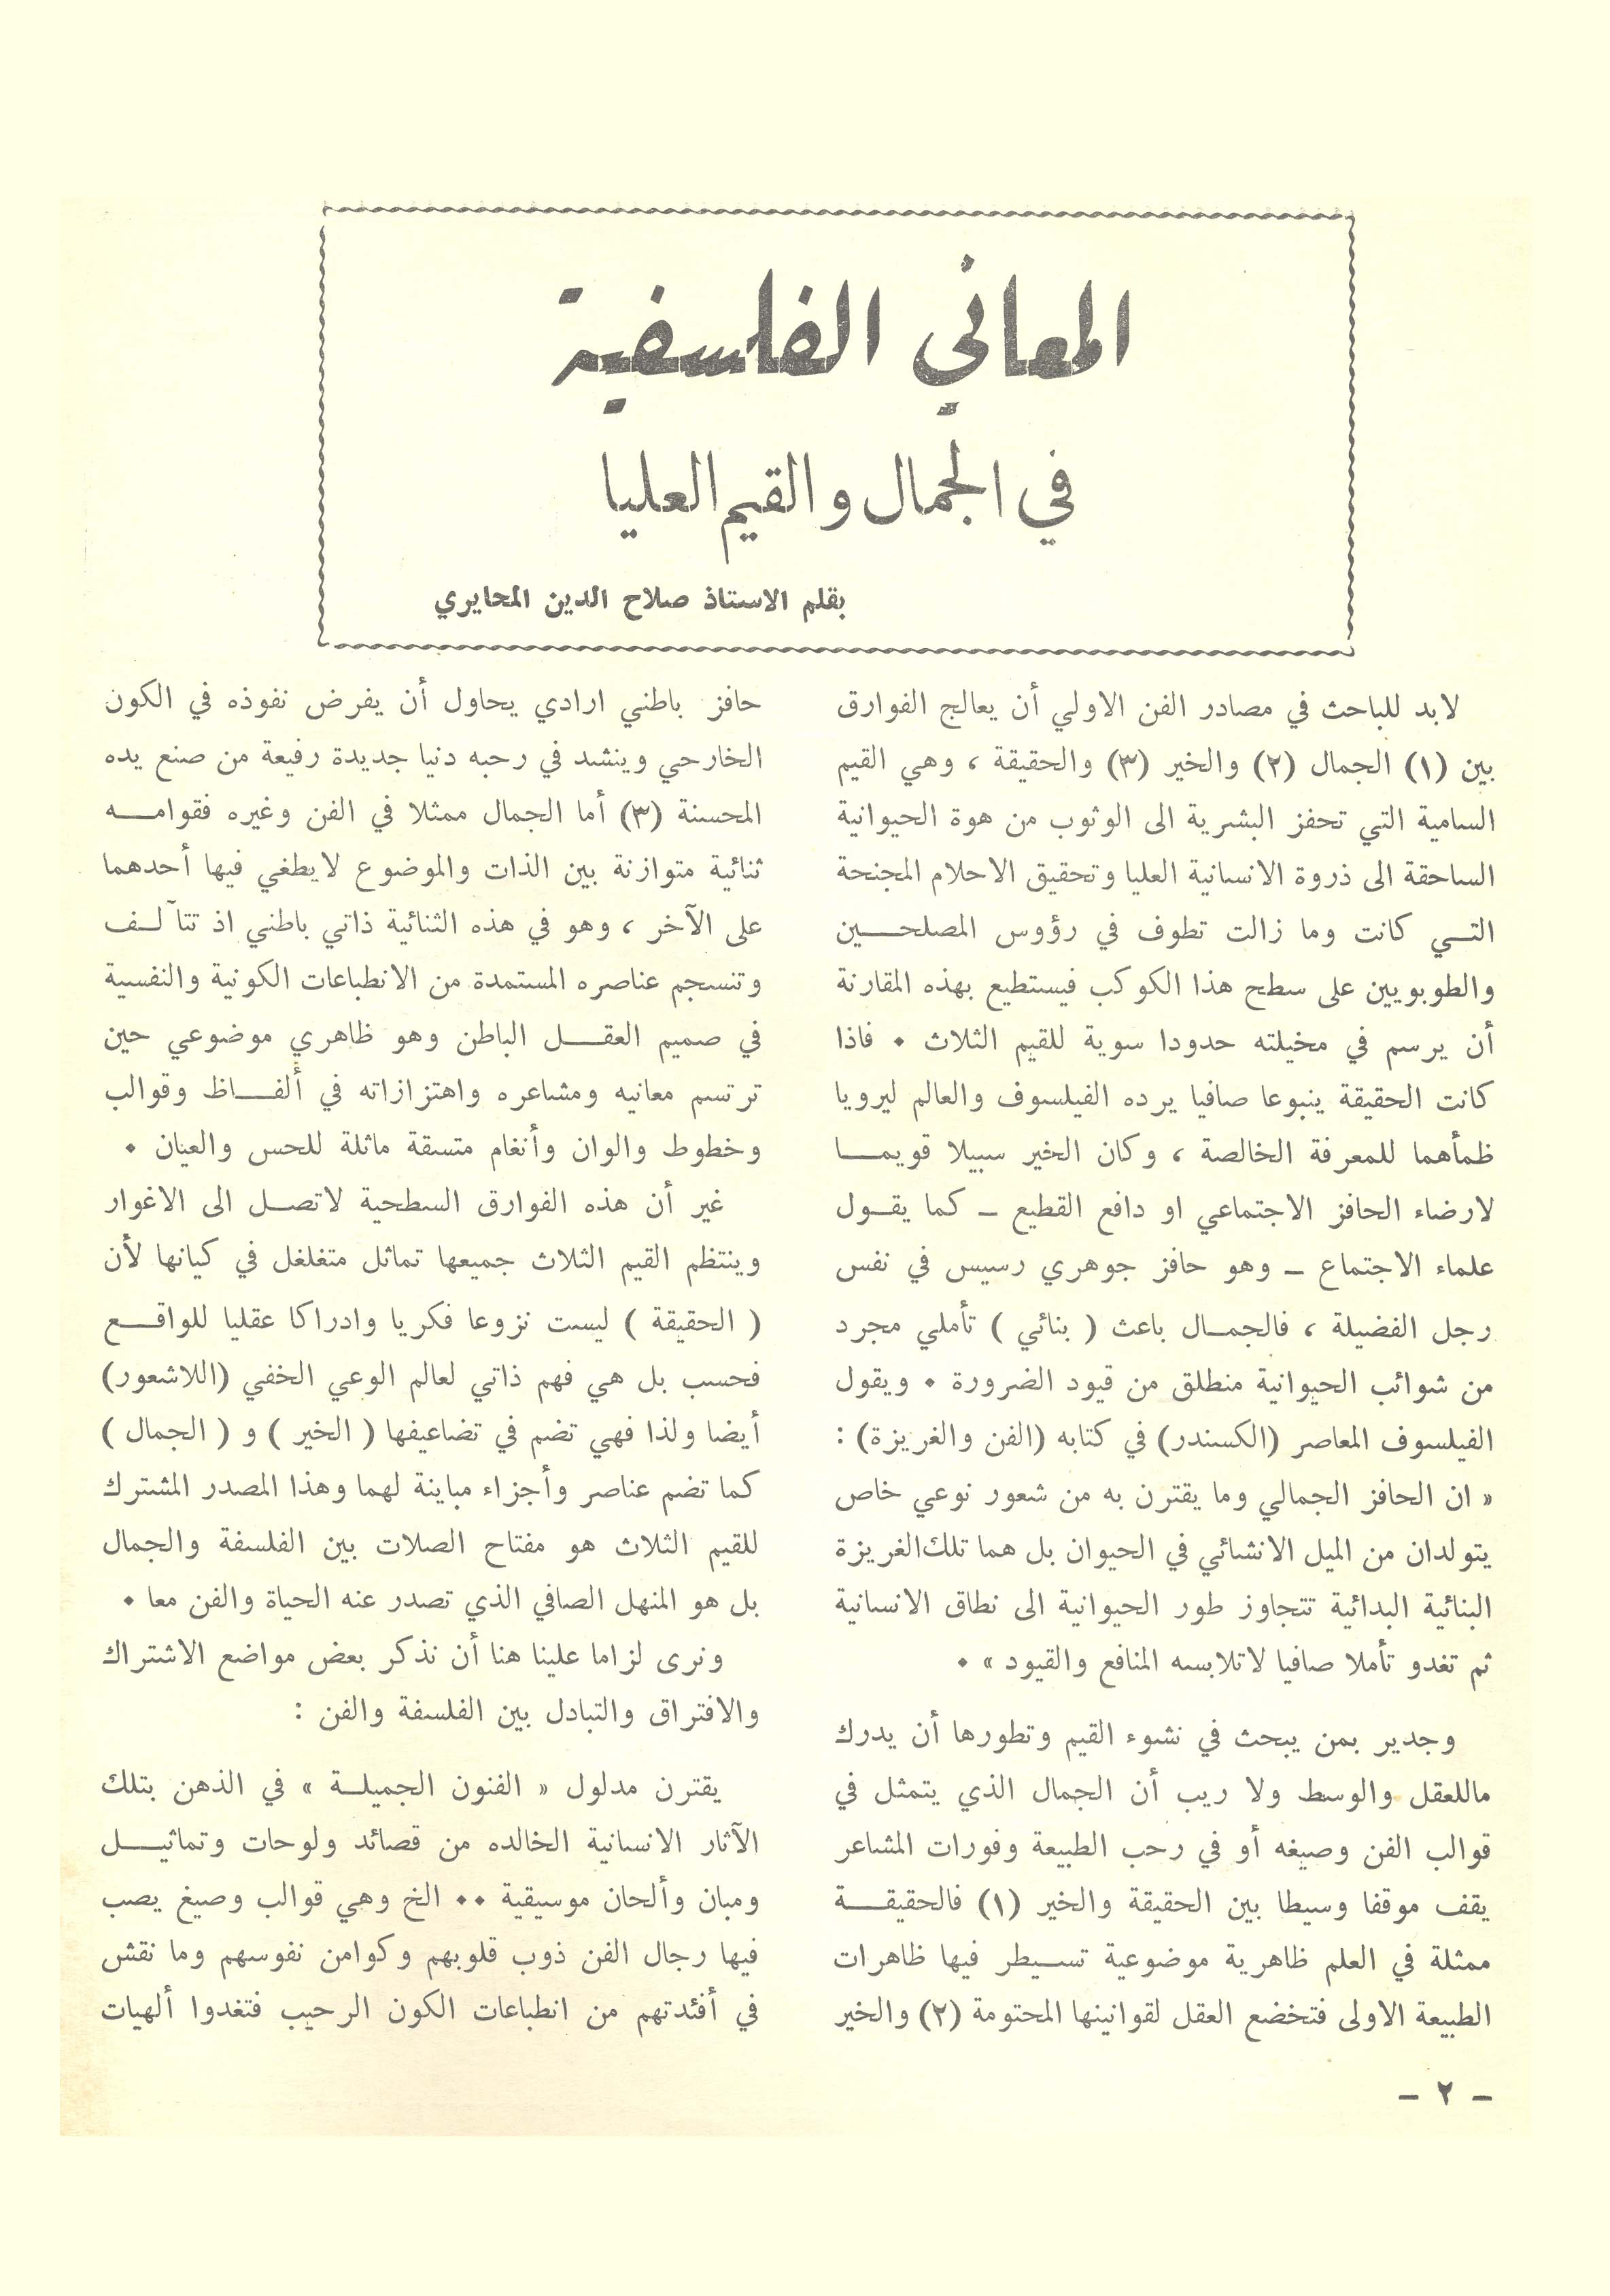 المعاني الفلسفية
في الجمال والقيم العليا
بقلم الاستاذ صلاح الدين المحايري
لابد للباحث في مصادر الفن الاولي أن يعالج الفوارق
بين (١) الجمال (٢) والخير (٣) والحقيقة ، وهي القيم
السامية التي تحفز البشرية الى الوثوب من هوة الحيوانية
الساحقة الى ذروة الانسانية العليا وتحقيق الاحلام المجنحة
التي كانت وما زالت تطوف في رؤوس المصلحين
والطوبويين على سطح هذا الكوكب فيستطيع بهذه المقارنة
أن يرسم في مخيلته حدودا سوية للقيم الثلاث • فاذا
كانت الحقيقة ينبوعا صافيا يرده الفيلسوف والعالم ليرويا
ظمأهما للمعرفة الخالصة ، وكان الخير سبيلا قويما
لارضاء الحافز الاجتماعي او دافع القطيع – كما يقول
علماء الاجتماع – وهو حافز جوهري رسيس في نفس
رجل الفضيلة ، فالجمال باعث ( بنائي ) تأملي مجرد
من شوائب الحيوانية منطلق من قيود الضرورة • ويقول
الفيلسوف المعاصر (الكسندر) في كتابه (الفن والغريزة) :
« ان الحافز الجمالي وما يقترن به من شعور نوعي خاص
يتولدان من الميل الانشائي في الحيوان بل هما تلك الغريزة
البنائية البدائية تتجاوز طور الحيوانية الى نطاق الانسانية
ثم تغدو تأملا صافيا لاتلابسه المنافع والقيود » •
وجدير بمن يبحث في نشوء القيم وتطورها أن يدرك
ماللعقل والوسط ولا ريب أن الجمال الذي يتمثل في
قوالب الفن وصيغه أو في رحب الطبيعة وفورات المشاعر
يقف موقفا وسيطا بين الحقيقة والخير (١) فالحقيقة
ممثلة في العلم ظاهرية موضوعية تسيطر فيها ظاهرات
الطبيعة الاولى فتخضع العقل لقوانينها المحتومة (٢) والخير
حافز باطني ارادي يحاول أن يفرض نفوذه في الكون
الخارجي وينشد في رحبه دنيا جديدة رفيعة من صنع يده
المحسنة (٣) أما الجمال ممثلا في الفن وغيره فقوامه
ثنائية متوازنة بين الذات والموضوع لايطغي فيها أحدهما
على الآخر ، وهو في هذه الثنائية ذاتي باطني اذ تتآلف
وتنسجم عناصره المستمدة من الانطباعات الكونية والنفسية
في صميم العقل الباطن وهو ظاهري موضوعي حين
ترتسم معانيه ومشاعره واهتزازاته في ألفاظ وقوالب
وخطوط والوان وأنغام متسقة ماثلة للحس والعيان •
غير أن هذه الفوارق السطحية لاتصل الى الاغوار
وينتظم القيم الثلاث جميعها تماثل متغلغل في كيانها لأن
( الحقيقة ) ليست نزوعا فكريا وادراكا عقليا للواقع
فحسب بل هي فهم ذاتي لعالم الوعي الخفي (اللاشعور)
أيضا ولذا فهي تضم في تضاعيفها ( الخير ) و ( الجمال )
كما تضم عناصر وأجزاء مباينة لهما وهذا المصدر المشترك
للقيم الثلاث هو مفتاح الصلات بين الفلسفة والجمال
بل هو المنهل الصافي الذي تصدر عنه الحياة والفن معا •
ونرى لزاما علينا هنا أن نذكر بعض مواضع الاشتراك
والافتراق والتبادل بين الفلسفة والفن :
يقترن مدلول « الفنون الجميلة » في الذهن بتلك
الآثار الانسانية الخالده من قصائد ولوحات وتماثيل
ومبان وألحان موسيقية •• الخ وهي قوالب وصيغ يصب
فيها رجال الفن ذوب قلوبهم وكوامن نفوسهم وما نقش
في أفئدتهم من انطباعات الكون الرحيب فتغدوا ألهيات
– ٢ –